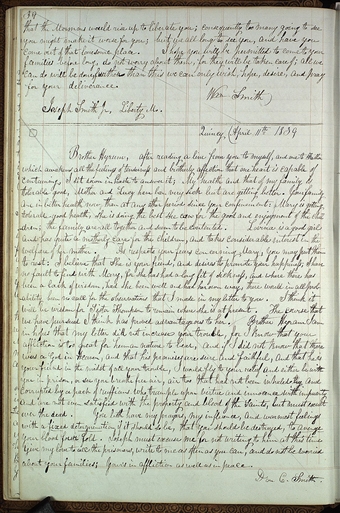 34
that the Mormons would rise up to liberate you; consequently too many going to see
you might make it worse for you; but we all long to see you, and have you
come out of that lonesome place. I hope you will be permitted to come to your
families before long, do not worry about them, for they will be taken care of; all we
can do will be done; further than this we can only wish, hope, desire, and pray
for your deliverance.
Wm Smith
Joseph Smith Jr, Liberty, Mo.
Quincy, April 11th 1839
Brother Hyrum, after reading a line from you to myself, and one to Father
which awakens all the feelings of tenderness and brotherly affection that one heart is capable of
containing, I sit down in haste to answer it; My health and that of my family is
tolerable good; Mother and Lucy have been very sick but are getting better. Your family
are in better health now, than at any other period since your confinement; Mary is getting
tolerable good health, she is doing the best she can for the good and enjoyment of the chil
dren; the family are all together and seem to be contented. Lovina is a good girl
and has quite a motherly care for the children, and takes considerable interest in the
for her Mother. As respects your concerning Mary, You may put them
to rest; I believe that she is your friend, and desires to promote your happiness; I have
no fault to find with Mary, for she has had a long fit of sickness, and where there has
been a lack of wisdom, had she been well and had her own way, there would in all prob
ability been no call for the observations that I made in my letter to you. I think it
will be wisdom for Sister Thompson to remain where she is at present. The course that
we have pursued I think has proved advantageous to her. Brother Hyrum I am
in hopes that my letter did not increase your trouble, for I know that your
affliction is too great for human nature to bear, And if I did not know that there
was a God in Heaven, and that his promises are sure and faithful, and that he is
your friend in the midst of all your trouble, I would fly to your relief and either be with
you in prison, or see you breathe free air, air too that had not been inhaled by and
corrupted by a pack of ruffians who trample upon virtue and innocence with impunity
and are not even satisfied with the property and blood of the Saints, but must exult
over the dead. You both have my prayers, my influence, and warmest feelings
with a fixed determination if it should so be, that you should be destroyed, to avenge
your blood four fold. Joseph must excuse me for not writing to him at this time.
Give my love to all the prisoners, write to me as often as you can, and do not be worried
about your families; Yours in affliction as well as in peace.
Don C. Smith.